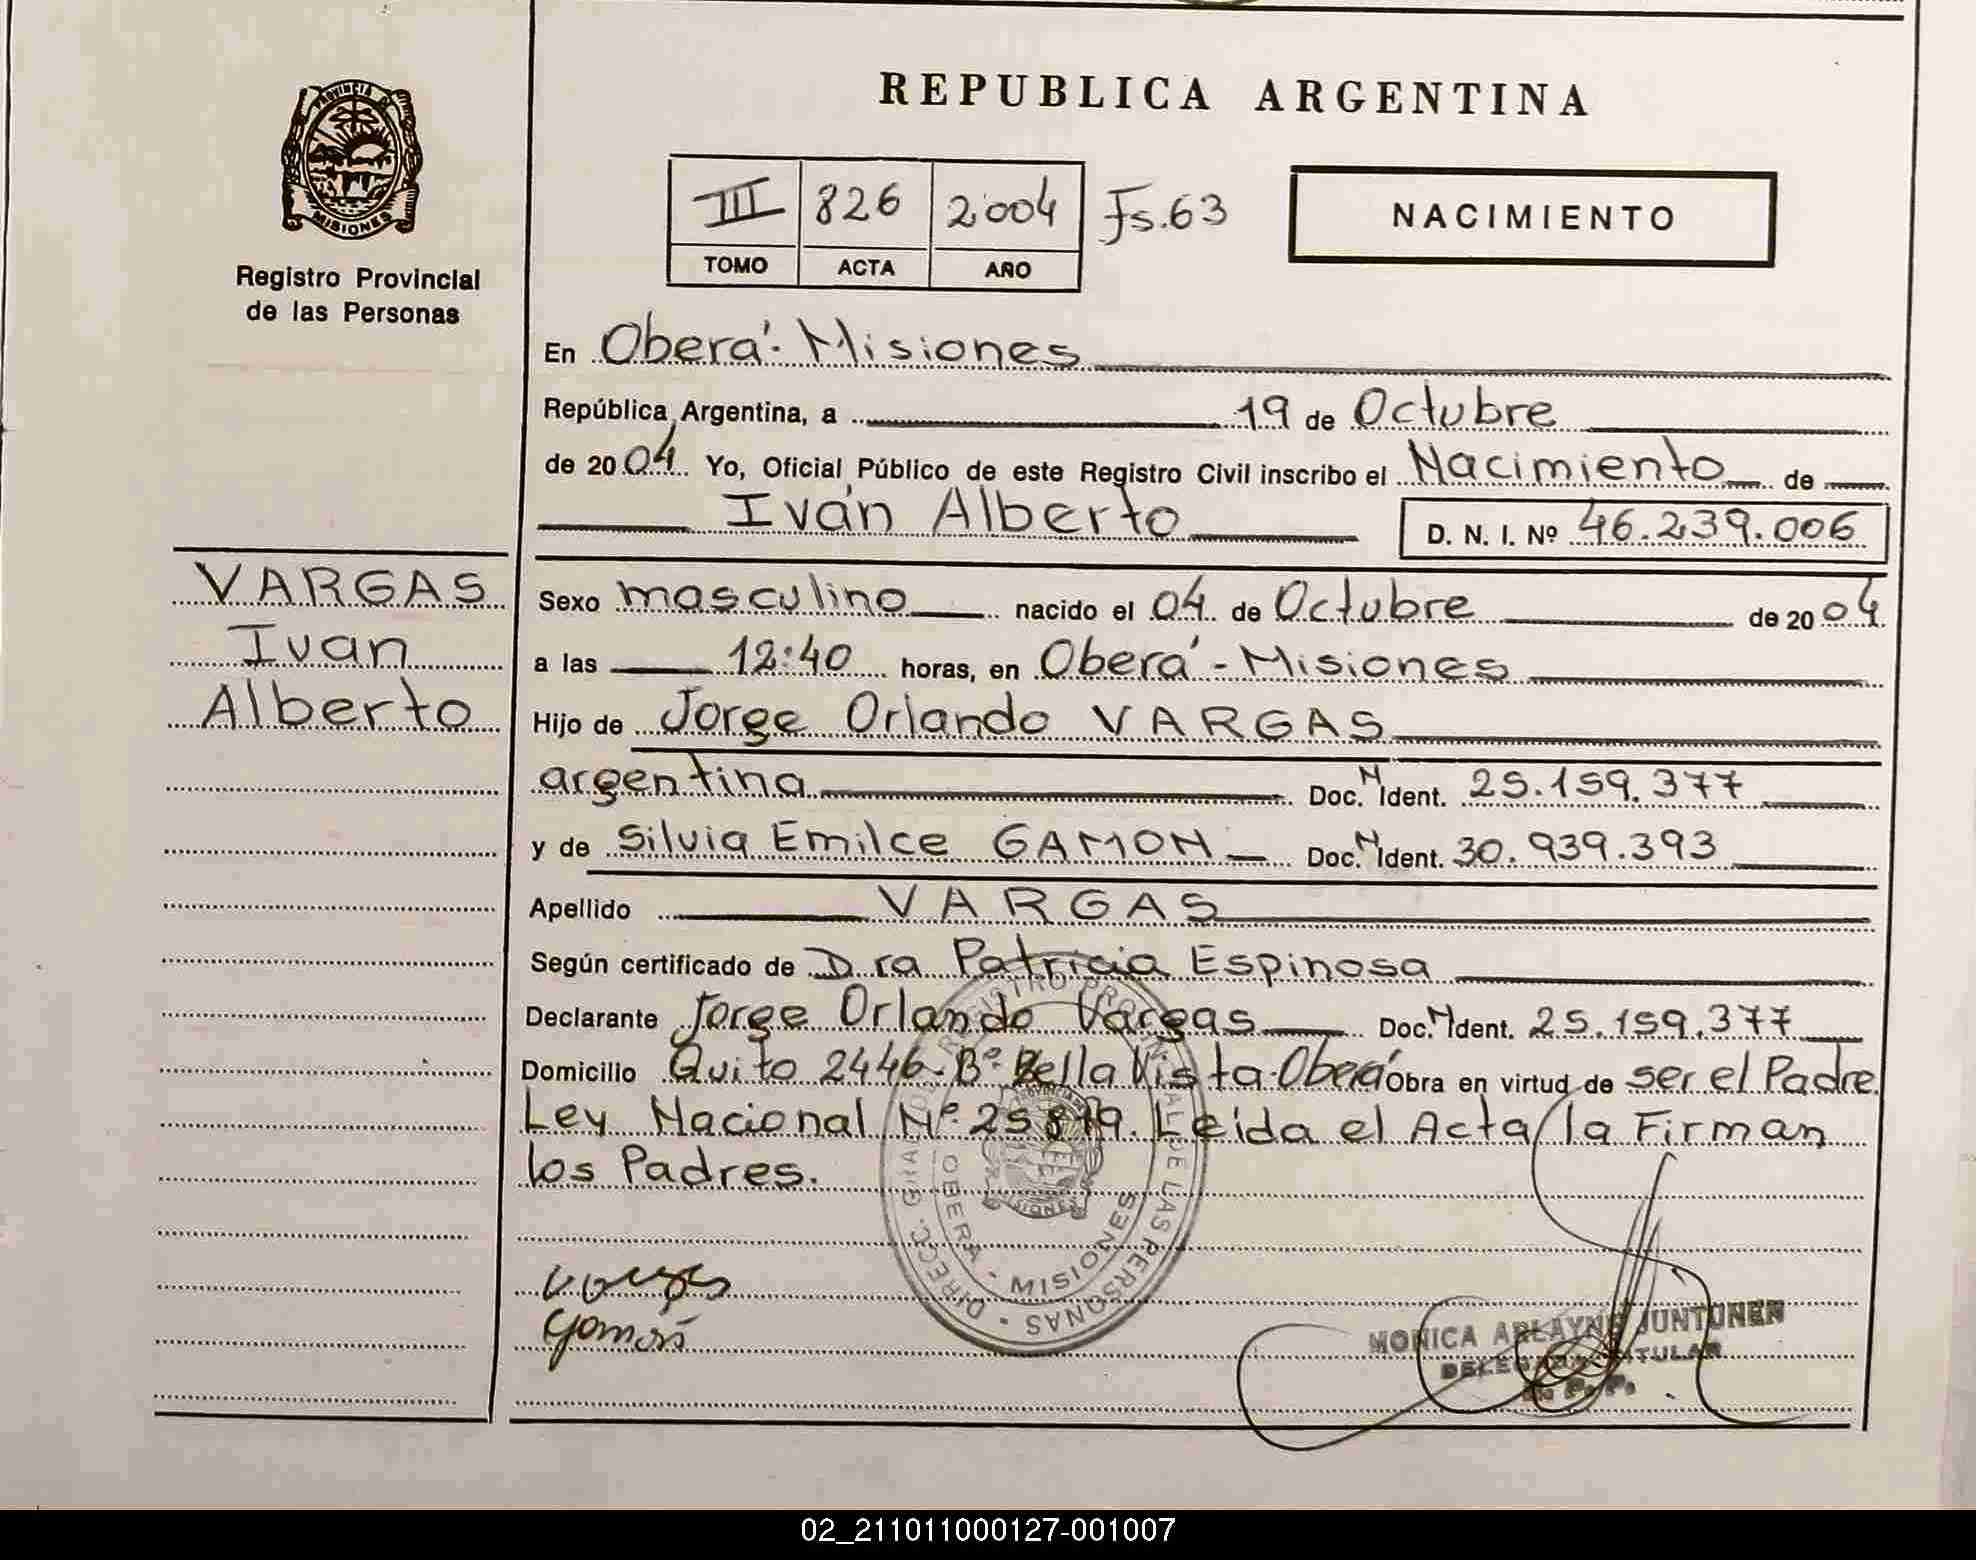 REPUBLICA ARGENTINA
PROVINCIA DE
MISIONES
Registro Provincial
de las Personas
III 826 2004 Fs.63
TOMO ACTA AÑO
NACIMIENTO
En Oberá - Misiones
República Argentina, a 19 de Octubre
de 2004. Yo, Oficial Público de este Registro Civil inscribo el Nacimiento de
Iván Alberto
D. N. I. Nº 46.239.006
VARGAS
Ivan
Alberto
Sexo masculino nacido el 04 de Octubre de 2004
a las 12:40 horas, en Oberá - Misiones
Hijo de Jorge Orlando VARGAS
argentina Doc. N Ident. 25.159.377
y de Silvia Emilce GAMON Doc. N Ident. 30.939.393
Apellido VARGAS
Según certificado de Dra Patricia Espinosa
Declarante Jorge Orlando Vargas Doc. N Ident. 25.159.377
Domicilio Quito 2446. Bº Bella Vista. Oberá Obra en virtud de ser el Padre.
Ley Nacional Nº 25819. Leida el Acta la Firman
los Padres.
DIRECC. GRAL DE REGISTRO PROVINCIAL DE LAS PERSONAS
OBERA - MISIONES
Vargas
MONICA ARLAYNE JUNTUNEN
DELEGADA TITULAR
R. P. P.
02_211011000127-001007